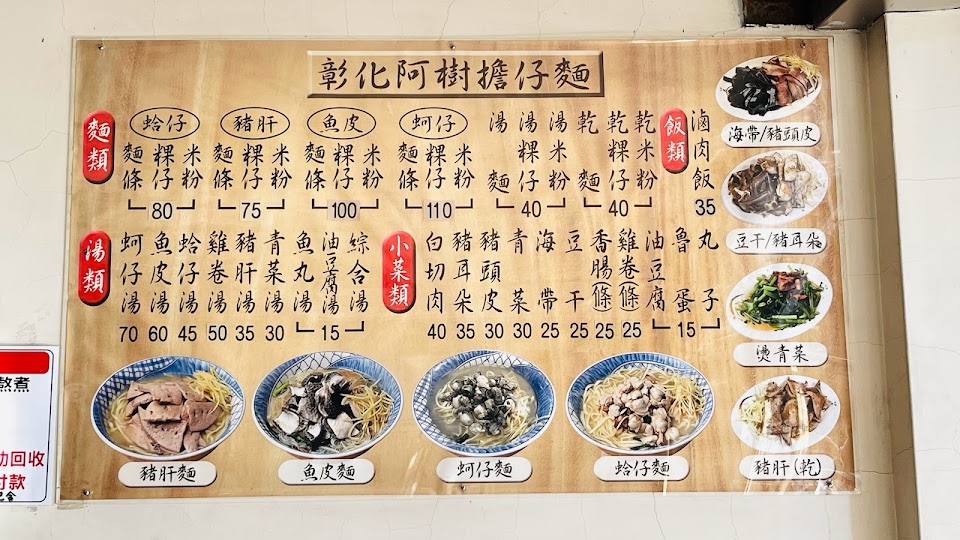 彰化阿樹擔仔麵
麵類
蛤仔
麵條
粿仔
米粉
80
豬肝
麵條
粿仔
米粉
75
魚皮
麵條
粿仔
米粉
100
蚵仔
麵條
粿仔
米粉
110
湯麵
湯粿仔
湯米粉
40
乾麵
乾粿仔
乾米粉
40
飯類
滷肉飯
35
湯類
蚵仔湯 70
魚皮湯 60
蛤仔湯 45
雞卷湯 50
豬肝湯 35
青菜湯 30
魚丸湯
油豆腐湯
綜合湯
15
小菜類
白切肉 40
豬耳朵 35
豬頭皮 30
青菜 30
海帶 25
豆干 25
香腸(條) 25
雞卷(條) 25
油豆腐
魯蛋
丸子
15
海帶/豬頭皮
豆干/豬耳朵
燙青菜
豬肝(乾)
豬肝麵
魚皮麵
蚵仔麵
蛤仔麵
熬煮
回收
付款